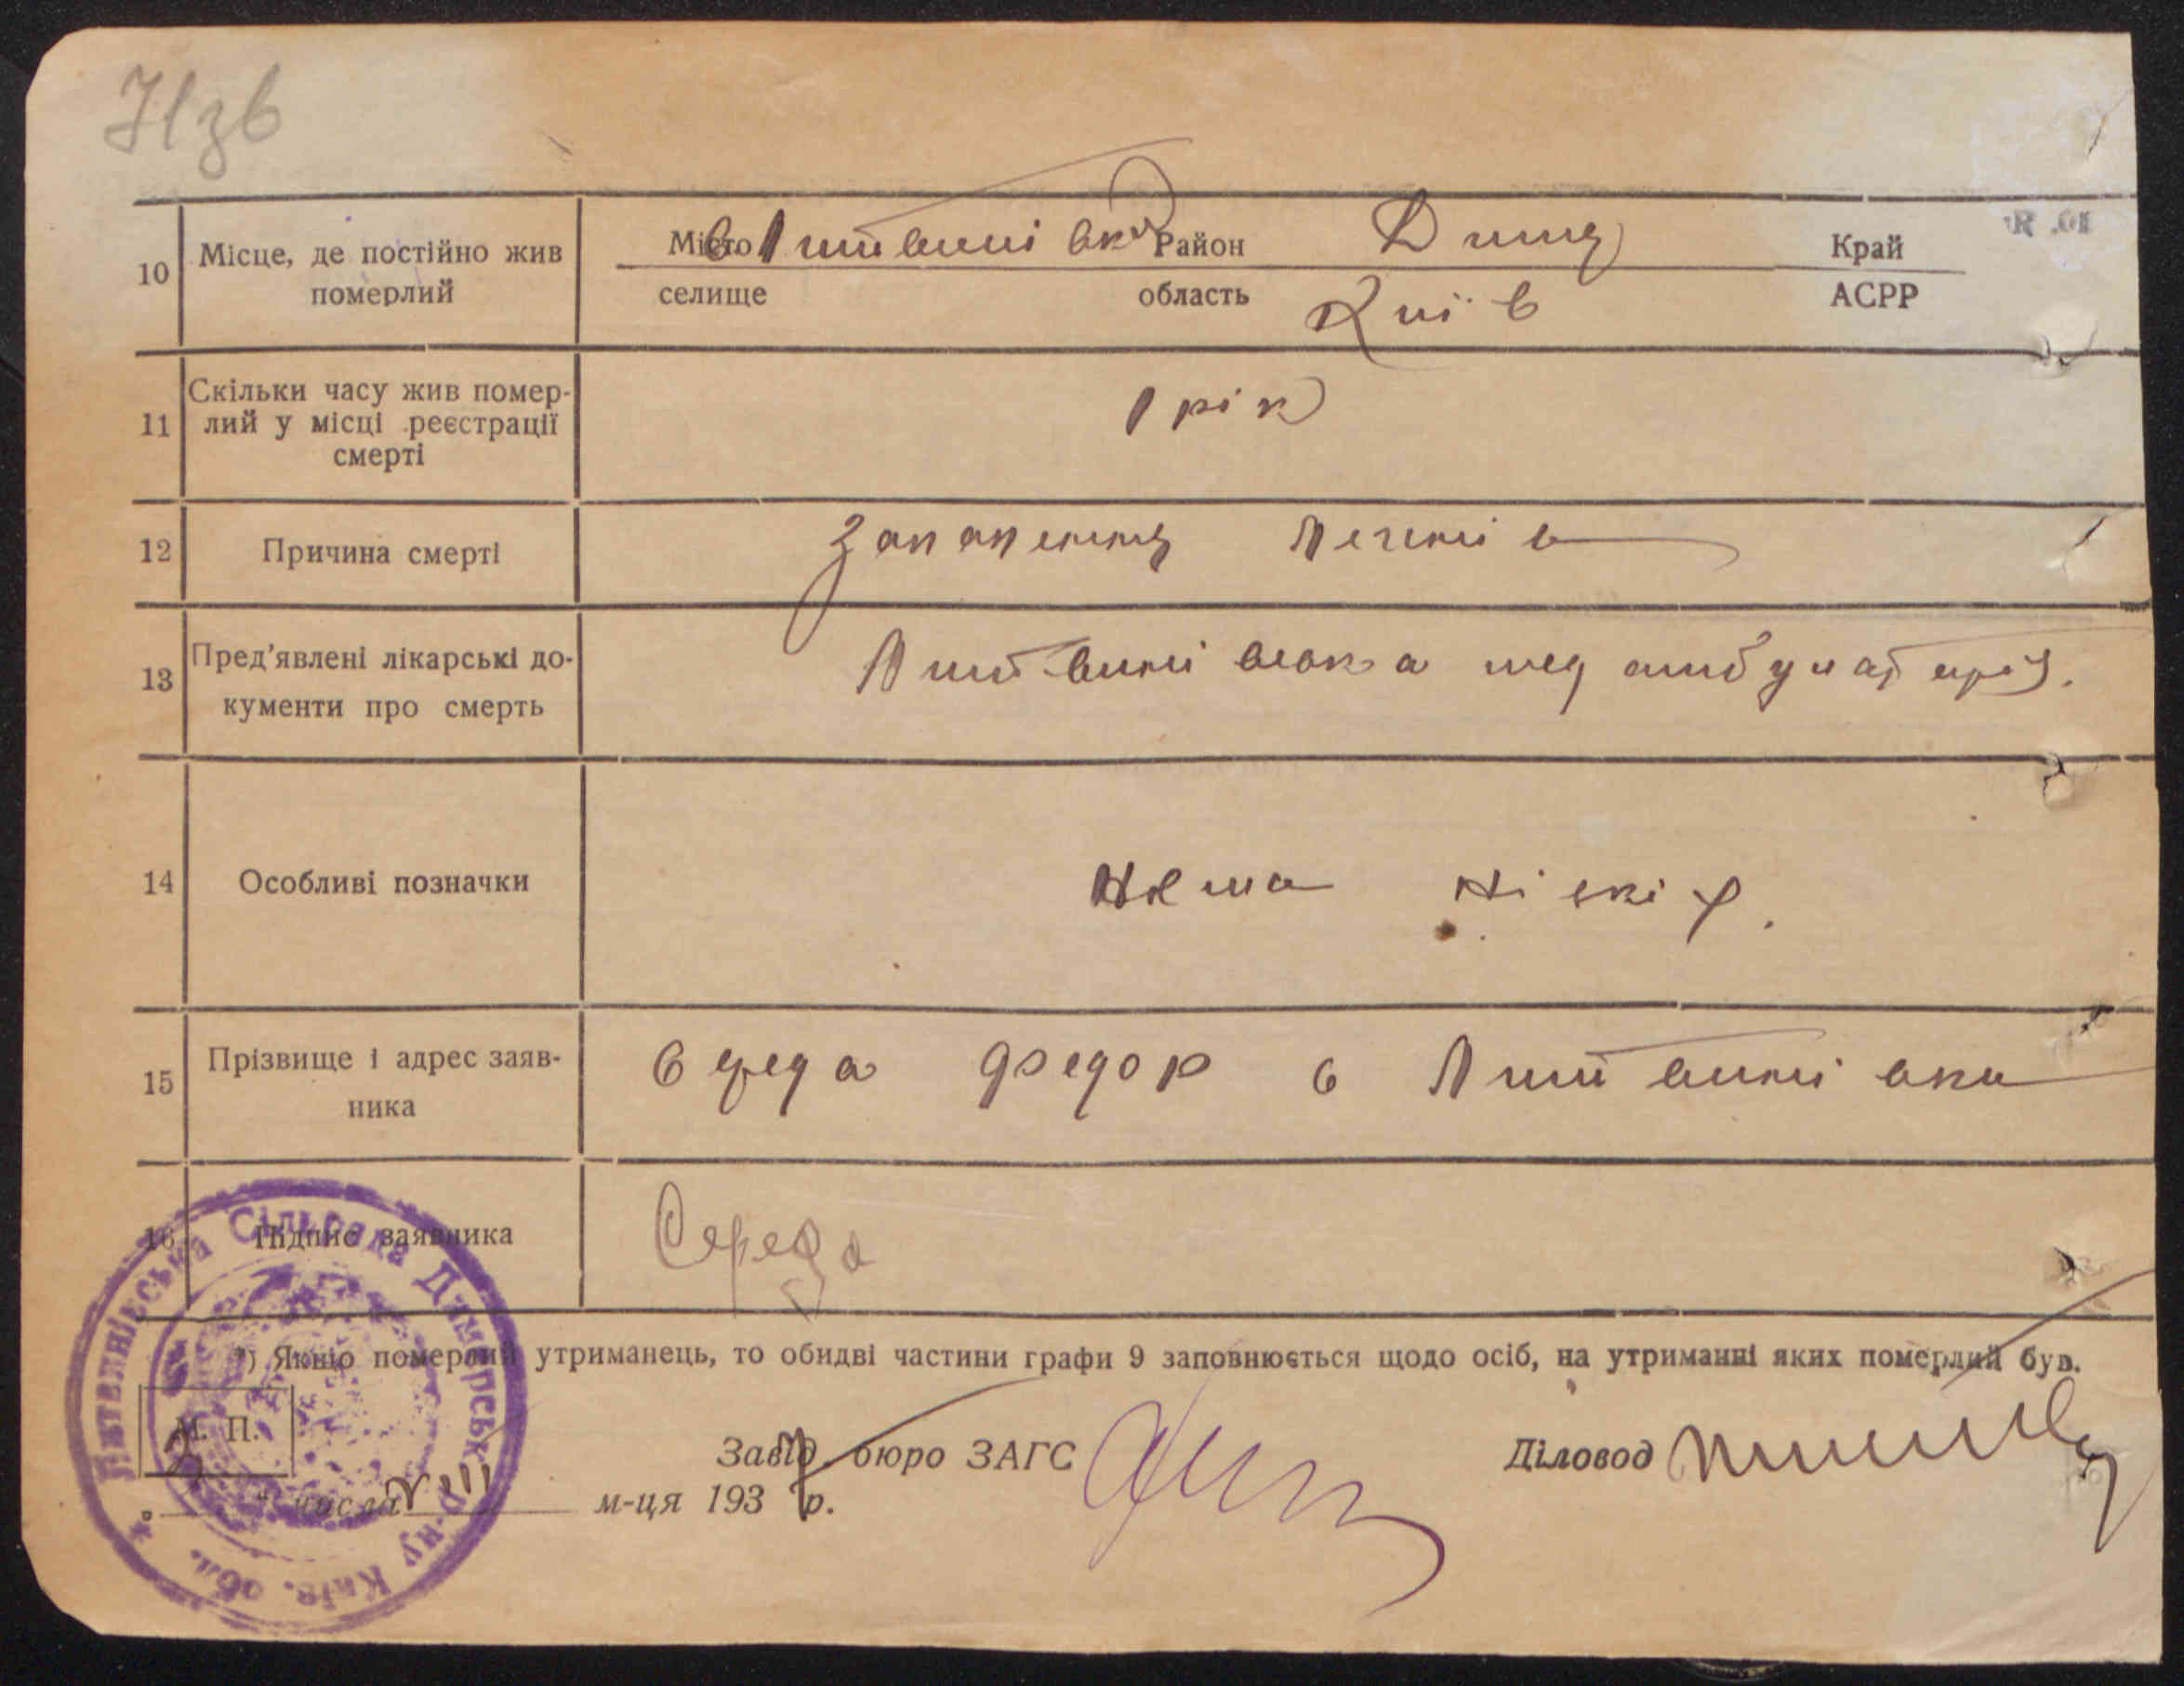 71зв
10 Місце, де постійно жив померлий
Місто с Литвинівка Район Димер Край
селище область Київ АСРР
11 Скільки часу жив помер-
лий у місці реєстрації
смерті
1 рік
12 Причина смерті
Запалення легенів
13 Пред'явлені лікарські до-
кументи про смерть
Литвинівська мед амбулаторія.
14 Особливі позначки
Нема ніяких.
15 Прізвище і адрес заяв-
ника
Середа Федор с Литвинівка
16 Підпис заявника
Середа
*) Якщо померлий утриманець, то обидві частини графи 9 заповнюється щодо осіб, на утриманні яких померлий був.
М. П.
Завід. бюро ЗАГС
Діловод
„ " числа VIII м-ця 193 р.
Литвинівська Сільська Рада Димерськ. р-ну Київ. обл.